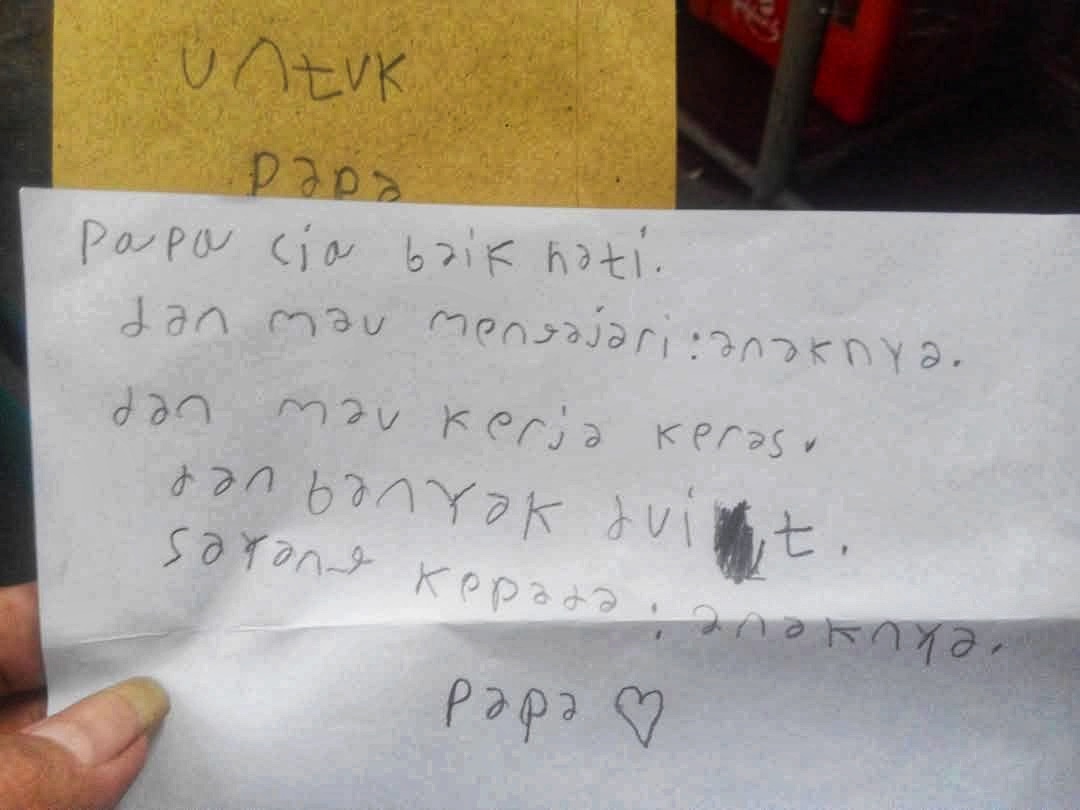 untuk
papa
papa cia baik hati.
dan mau mengajari:anaknya.
dan mau kerja keras.
dan banyak duit.
sayang kepada: anaknya.
papa ♡